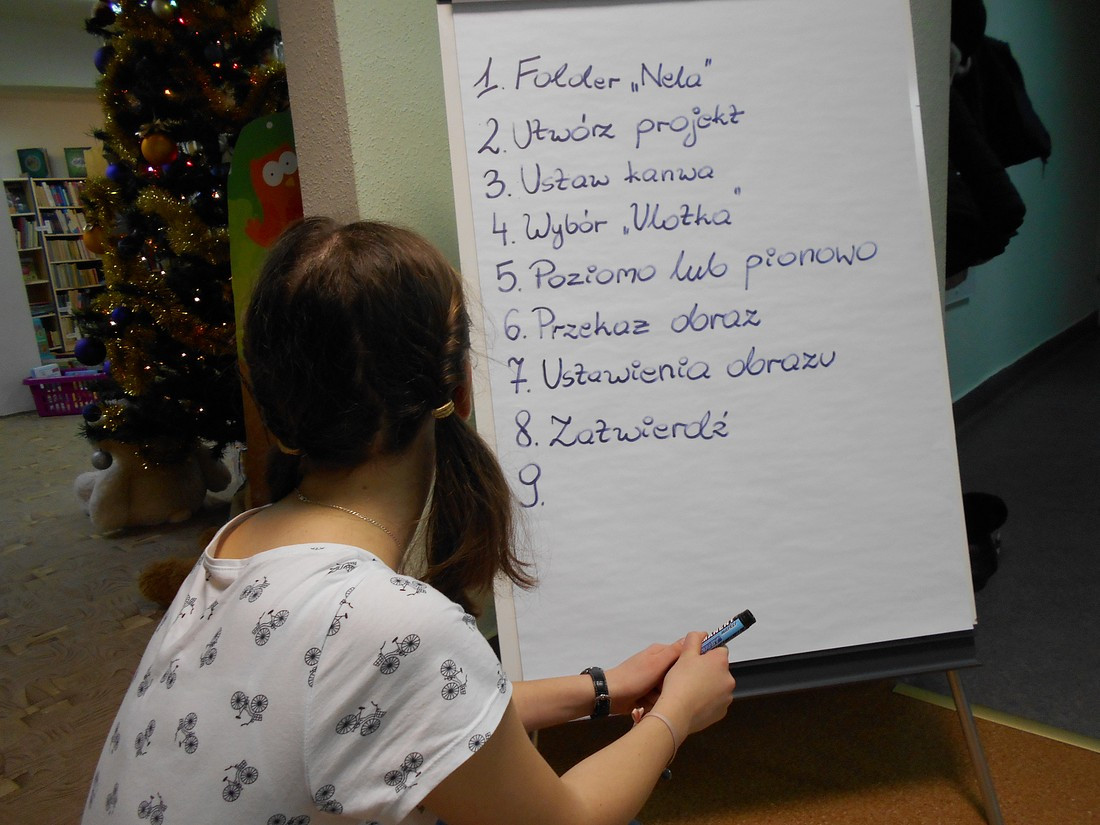 1. Folder „Nela”
2. Utwórz projekt
3. Ustaw kanwa
4. Wybór „Ulotka”
5. Poziomo lub pionowo
6. Przekaz obraz
7. Ustawienia obrazu
8. Zatwierdź
9.